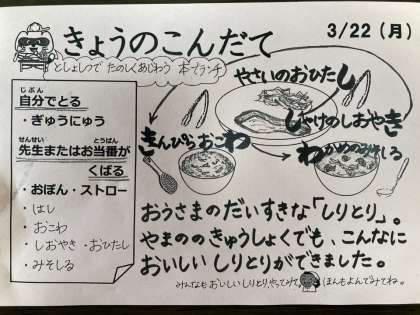 きょうのこんだて
3/22（月）
としょしつで たのしくあじわう 本でランチ
じぶん
自分でとる
・ぎゅうにゅう
せんせい とうばん
先生またはお当番が
くばる
・おぼん・ストロー
・はし
・おこわ
・しおやき・おひたし
・みそしる
やさいのおひたし
しゃけのしおやき
きんぴらおこわ
わかめのみそしる
おうさまのだいすきな「しりとり」。
やまののきゅうしょくでも、こんなに
おいしい しりとりができました。
みんなも おいしい しりとり、やってみて
ほんもよんでみてね。